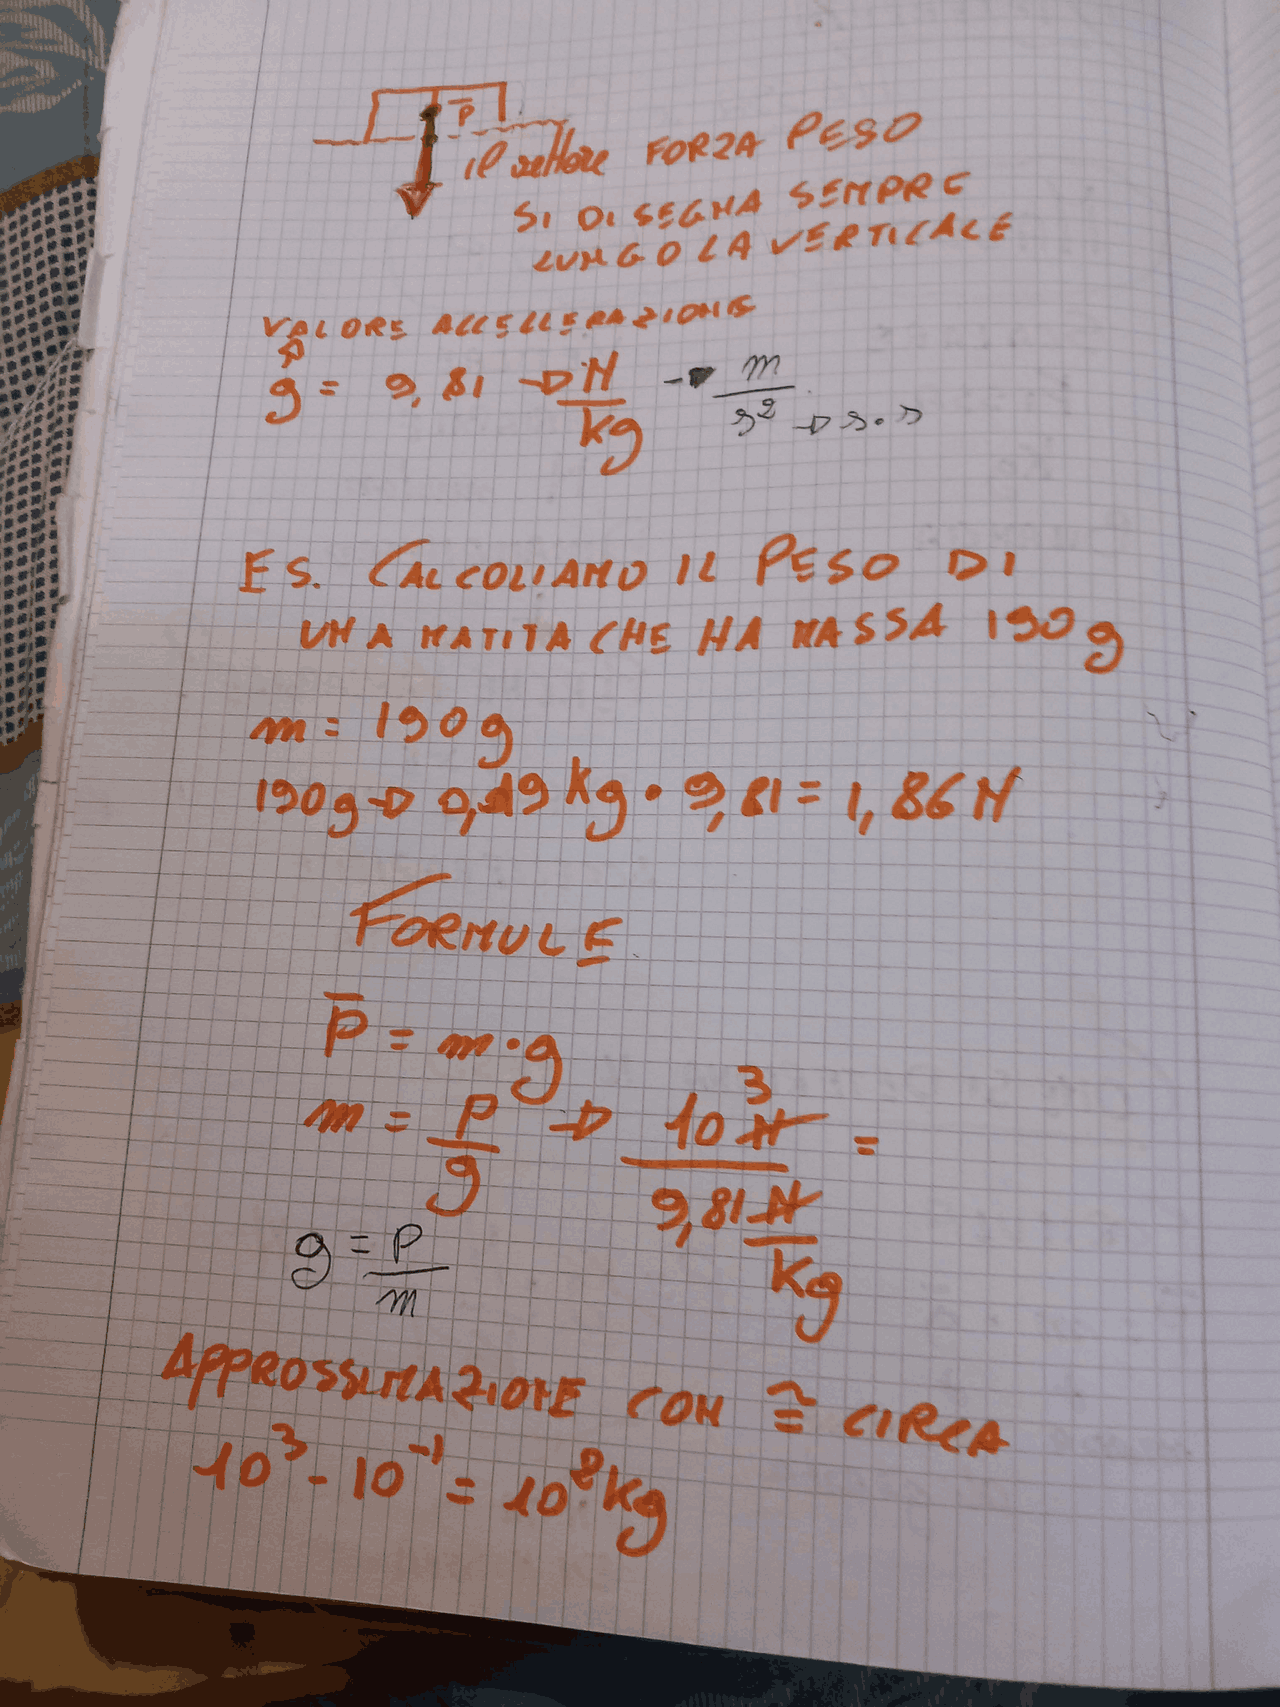 P̅
il vettore FORZA PESO
SI DISEGNA SEMPRE
LUNGO LA VERTICALE
VALORE ACCELLERAZIONE
g = 9,81 → N/kg → m/s² → s·s
ES. CALCOLIAMO IL PESO DI
UNA MATITA CHE HA MASSA 190g
m = 190g
190g → 0,19 kg · 9,81 = 1,86 N
FORMULE
P̅ = m·g
m = P/g → 10³ N / 9,81 N/kg =
g = P/m
APPROSSIMAZIONE CON ≅ CIRCA
10³ - 10⁻¹ = 10² kg